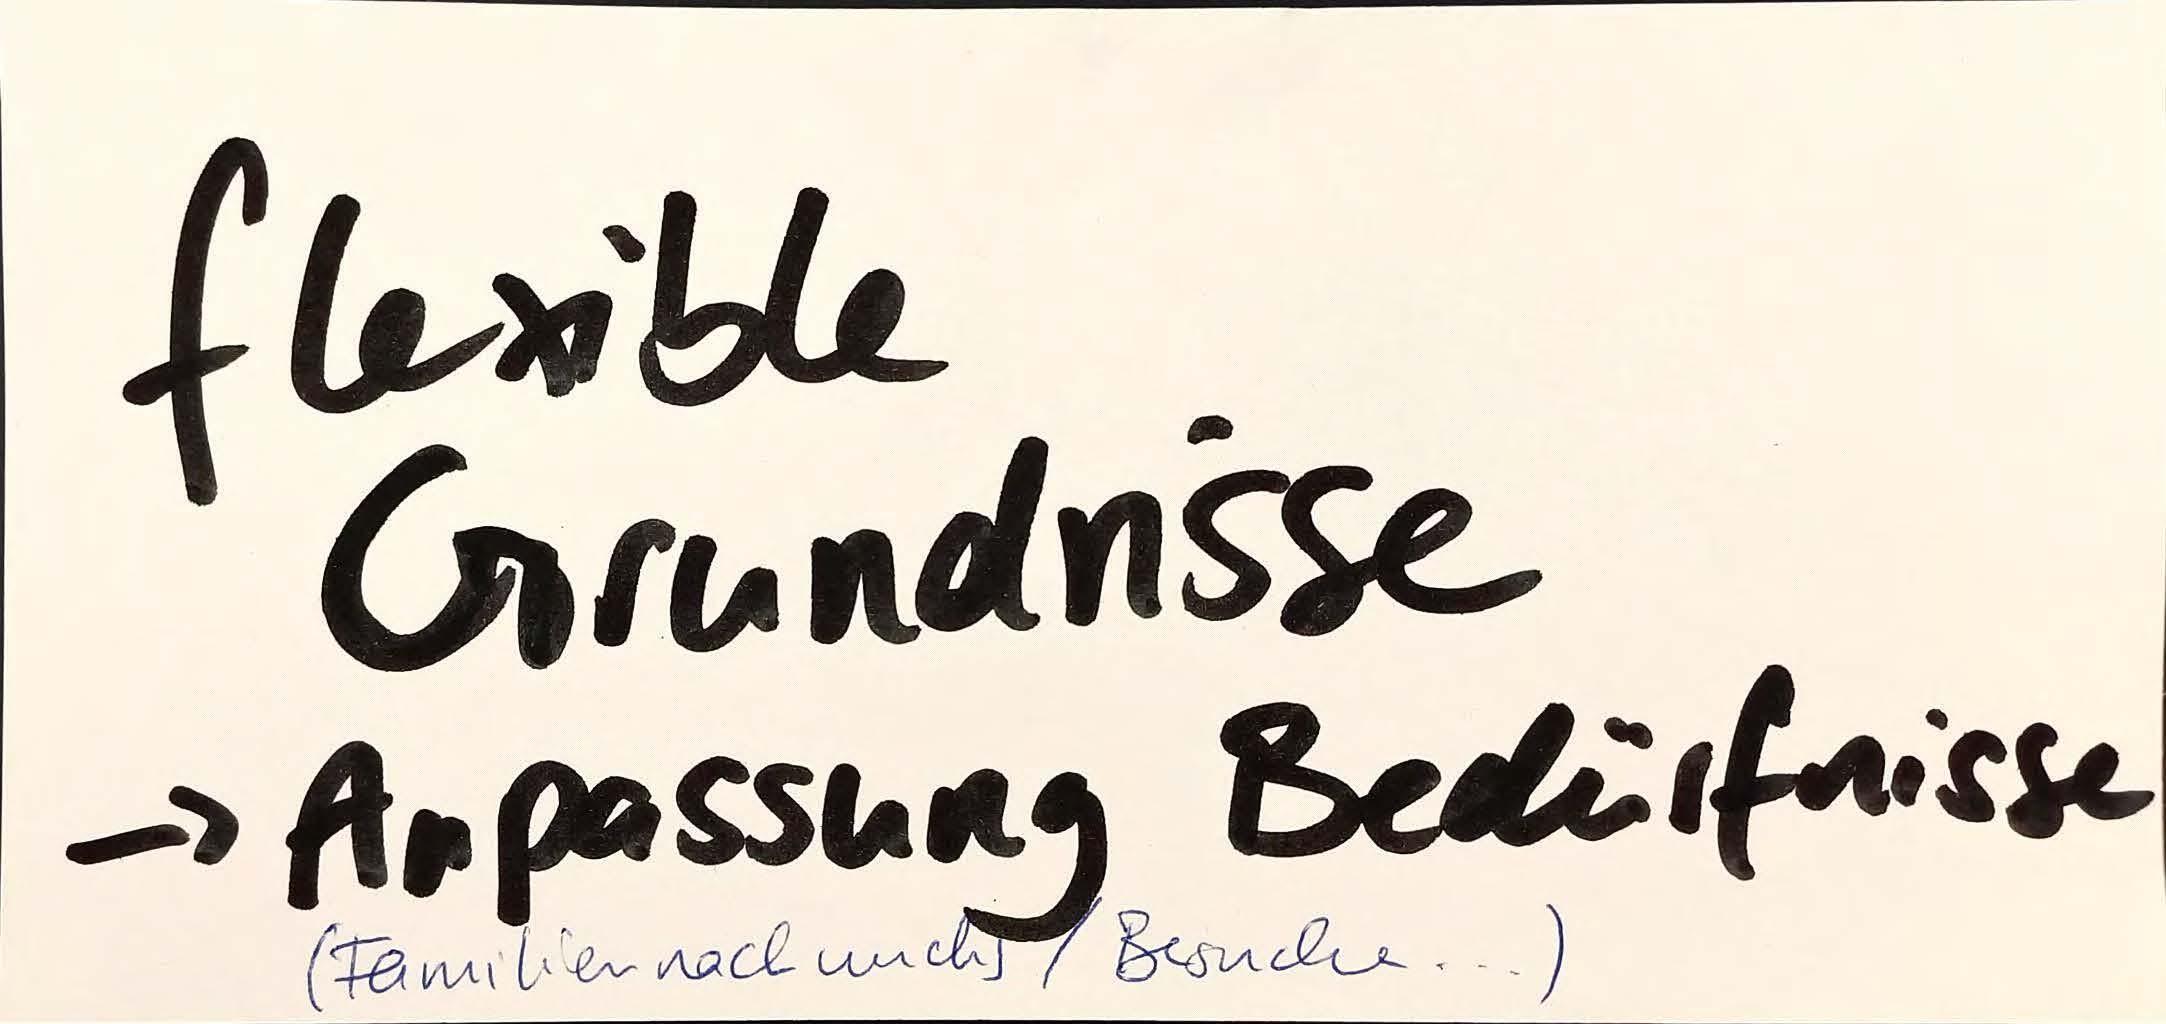 flexible
Grundrisse
→ Anpassung Bedürfnisse
(Familiennachwuchs / Besuche....)